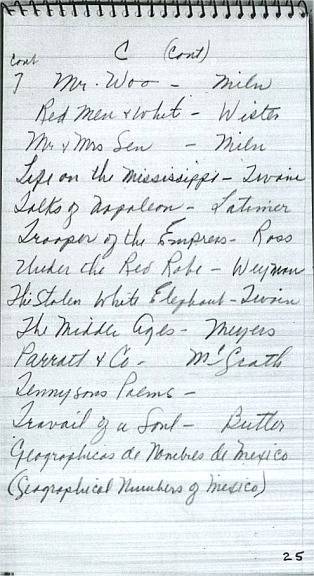 C (Cont)
cont
7 Mr. Woo - Miln
Red Men & White - Wister
Mr & Mrs Sen - Miln
Life on the Mississippi - Twain
Talks of Napoleon - Latimer
Trooper of the Empress - Ross
Under the Red Robe - Weyman
The Stolen White Elephant - Twain
The Middle Ages - Meyers
Parrott & Co. - McGrath
Tennysons Poems -
Travail of a Soul - Butler
Geographicas de Nombres de Mexico
(Geographical Numbers of Mexico)
25